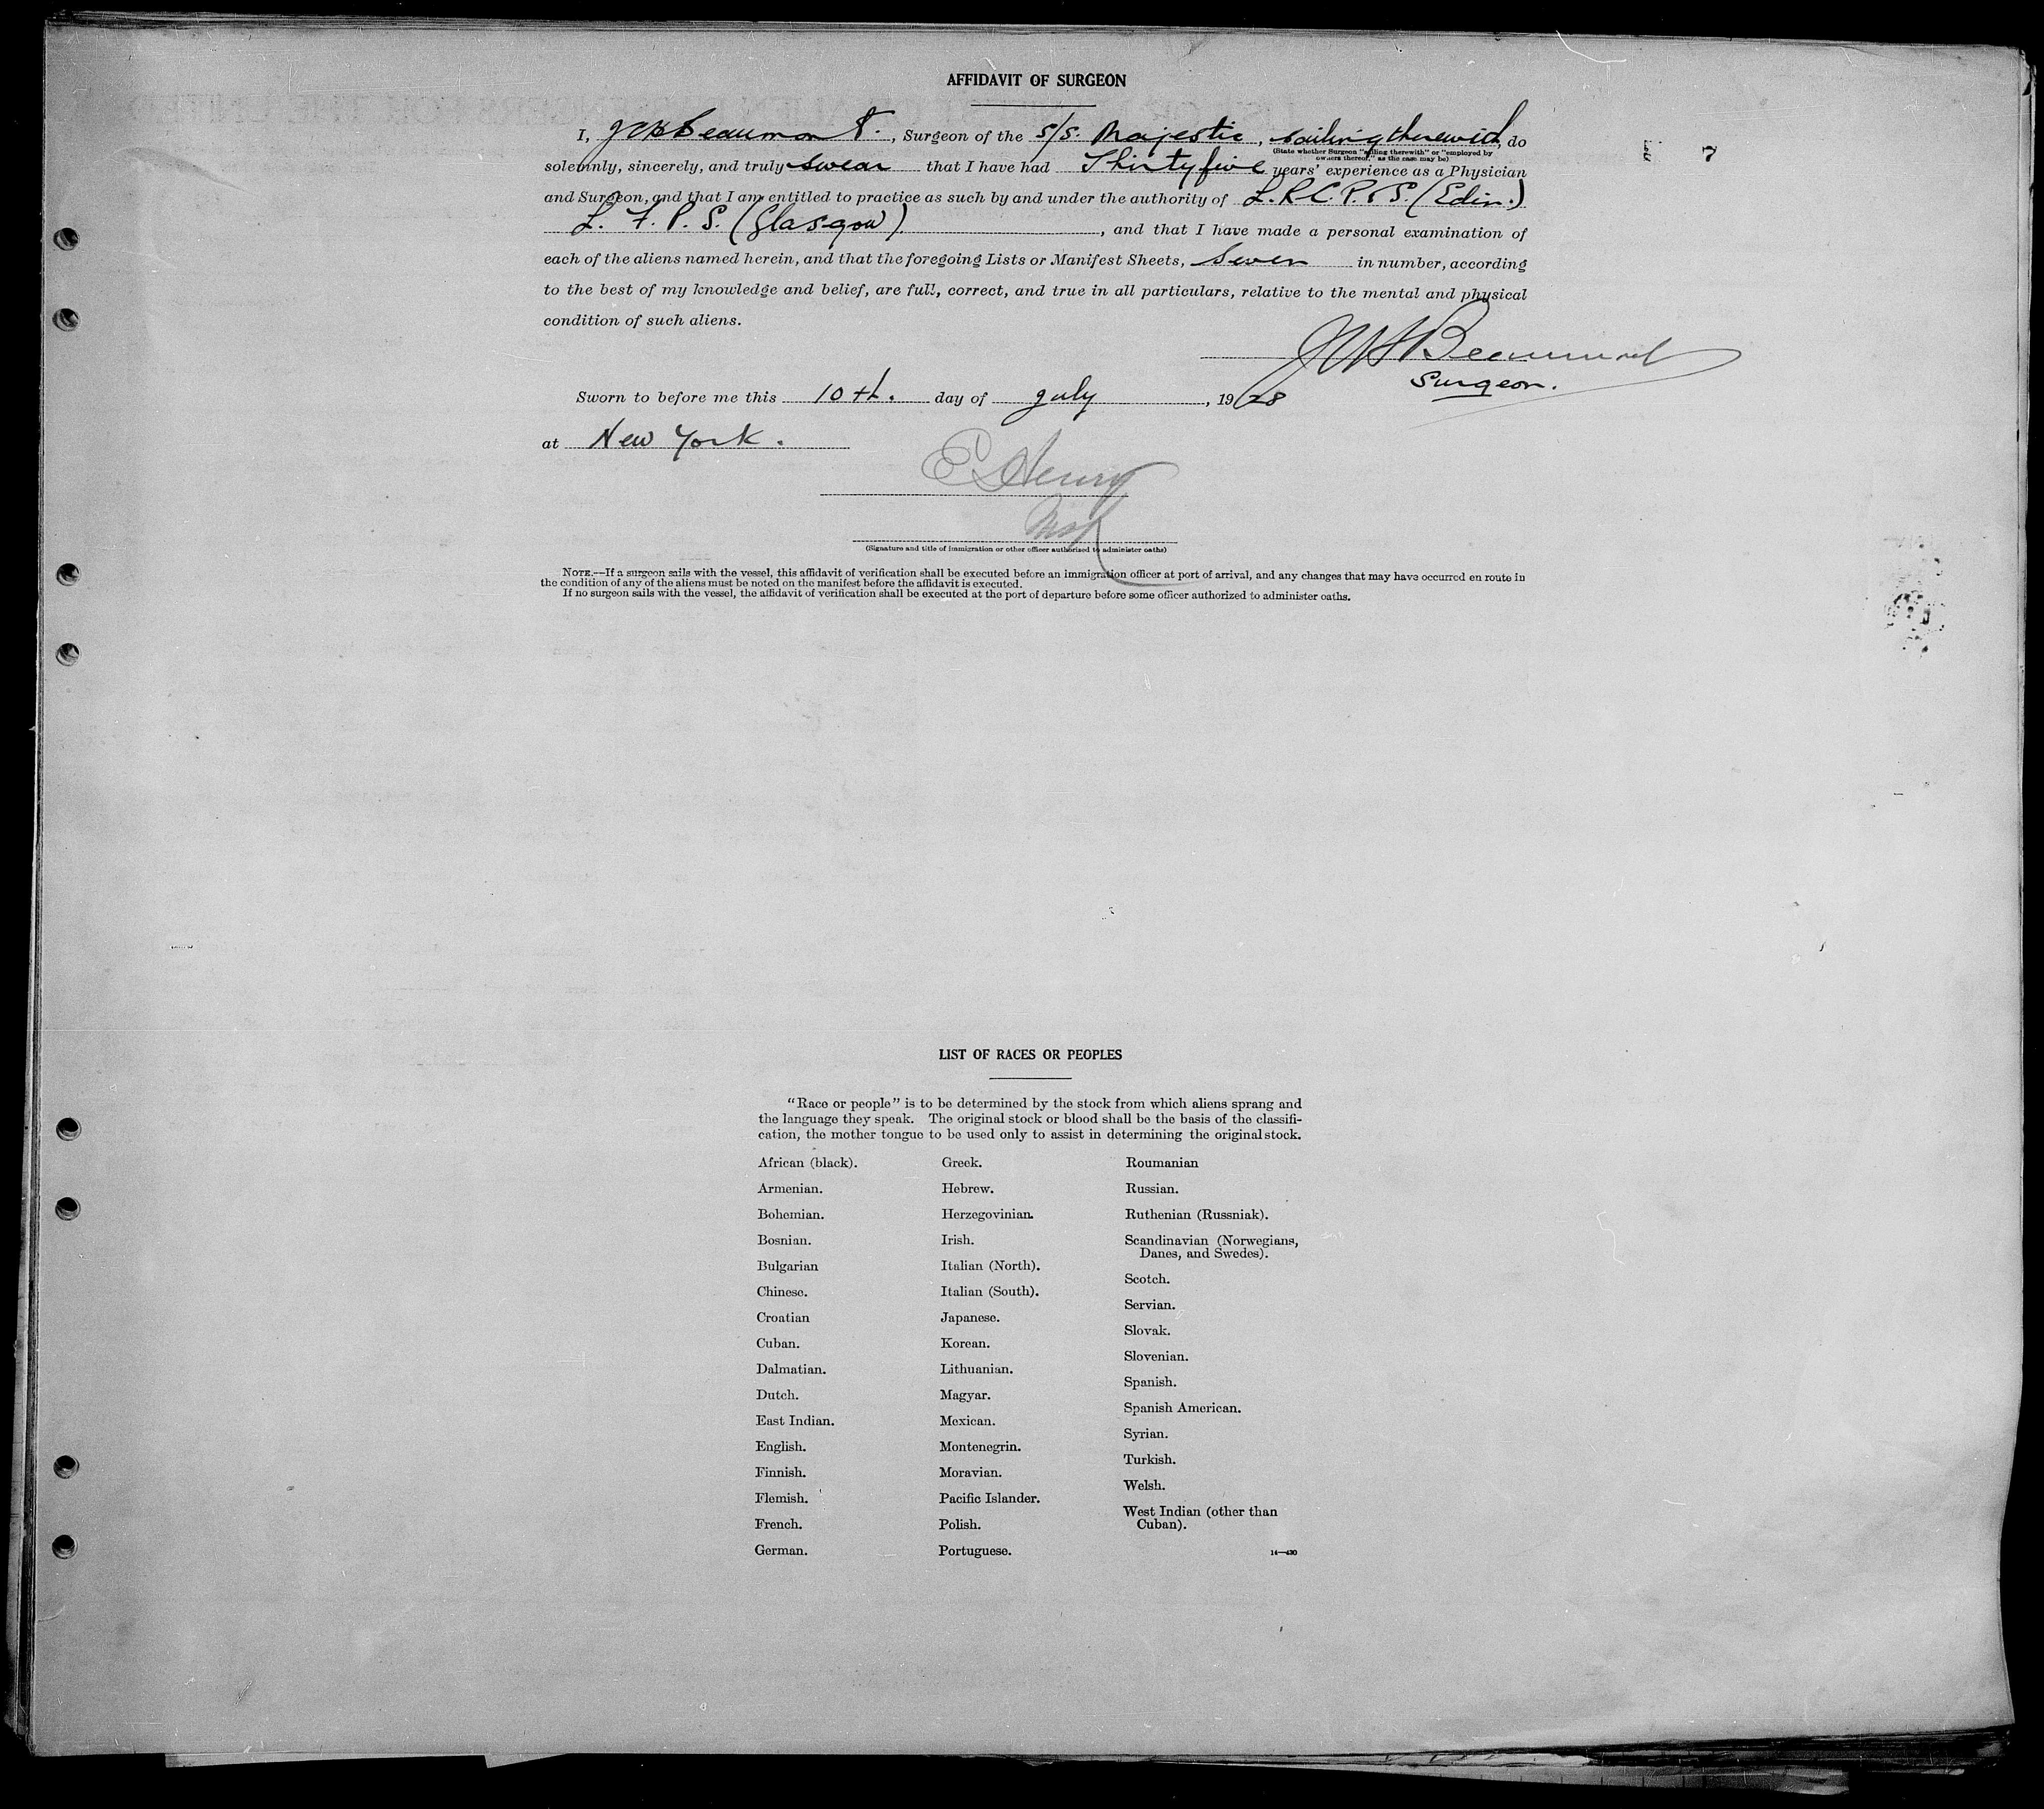 AFFIDAVIT OF SURGEON
I, Beaumont., Surgeon of the S/S. Majestic, sailing therewith, do
(State whether Surgeon "sailing therewith" or "employed by
owners thereof," as the case may be)
solemnly, sincerely, and truly swear that I have had Thirty five years' experience as a Physician
and Surgeon, and that I am entitled to practice as such by and under the authority of L.R.C.P.&S. (Edin.)
L. F. P. S. (Glasgow)., and that I have made a personal examination of
each of the aliens named herein, and that the foregoing Lists or Manifest Sheets, Seven in number, according
to the best of my knowledge and belief, are full, correct, and true in all particulars, relative to the mental and physical
condition of such aliens.
Beaumont
Surgeon.
Sworn to before me this 10th. day of July, 1928
at New York.
E Henry
(Signature and title of immigration or other officer authorized to administer oaths)
NOTE.—If a surgeon sails with the vessel, this affidavit of verification shall be executed before an immigration officer at port of arrival, and any changes that may have occurred en route in
the condition of any of the aliens must be noted on the manifest before the affidavit is executed.
If no surgeon sails with the vessel, the affidavit of verification shall be executed at the port of departure before some officer authorized to administer oaths.
LIST OF RACES OR PEOPLES
"Race or people" is to be determined by the stock from which aliens sprang and
the language they speak. The original stock or blood shall be the basis of the classifi-
cation, the mother tongue to be used only to assist in determining the original stock.
African (black).
Armenian.
Bohemian.
Bosnian.
Bulgarian
Chinese.
Croatian
Cuban.
Dalmatian.
Dutch.
East Indian.
English.
Finnish.
Flemish.
French.
German.
Greek.
Hebrew.
Herzegovinian.
Irish.
Italian (North).
Italian (South).
Japanese.
Korean.
Lithuanian.
Magyar.
Mexican.
Montenegrin.
Moravian.
Pacific Islander.
Polish.
Portuguese.
Roumanian
Russian.
Ruthenian (Russniak).
Scandinavian (Norwegians,
Danes, and Swedes).
Scotch.
Servian.
Slovak.
Slovenian.
Spanish.
Spanish American.
Syrian.
Turkish.
Welsh.
West Indian (other than
Cuban).
14—430